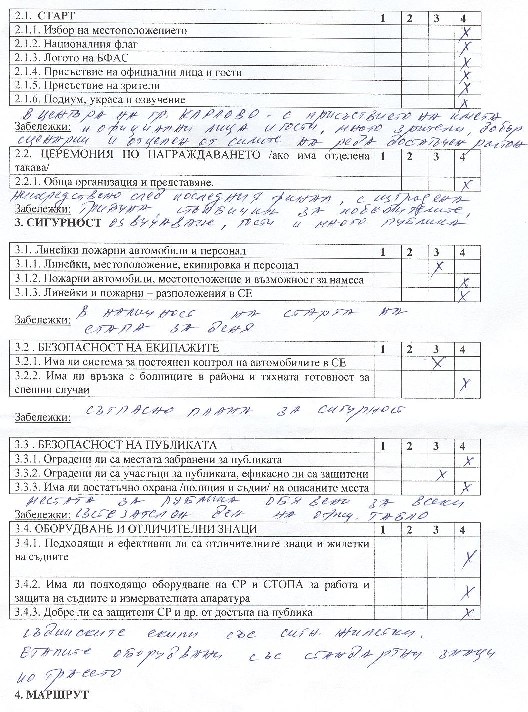 2.1. СТАРТ 1 2 3 4
2.1.1. Избор на местоположението X
2.1.2. Националния флаг X
2.1.3. Логото на БФАС X
2.1.4. Присъствие на официални лица и гости X
2.1.5. Присъствие на зрители X
2.1.6. Подиум, украса и озвучение X
В центъра на гр. Карлово - с присъствието на кмета
Забележки: и официални лица и гости, много зрители, добър
сценарии и отделен от силите на реда достатъчен район
2.2. ЦЕРЕМОНИЯ ПО НАГРАЖДАВАНЕТО /ако има отделена 1 2 3 4
такава/
2.2.1. Обща организация и представяне. X
Непосредствено след последния финал, с изградена
Забележки: трибуна, стълбички за победителите,
3. СИГУРНОСТ озвучаване, гости и много публика
3.1. Линейки пожарни автомобили и персонал 1 2 3 4
3.1.1. Линейки, местоположение, екипировка и персонал X
3.1.2. Пожарни автомобили, местоположение и възможност за намеса X
3.1.3. Линейки и пожарни – разположения в СЕ X
В наличност на старта на
Забележки: етапа за деня
3.2 . БЕЗОПАСНОСТ НА ЕКИПАЖИТЕ 1 2 3 4
3.2.1. Има ли система за постоянен контрол на автомобилите в СЕ X
3.2.2. Има ли връзка с болниците в района и тяхната готовност за X
спешни случаи
Съгласно плана за сигурност
Забележки:
3.3 . БЕЗОПАСНОСТ НА ПУБЛИКАТА 1 2 3 4
3.3.1. Оградени ли са местата забранени за публиката X
3.3.2. Оградени ли са участъци за публиката, ефикасно ли са защитени X
3.3.3. Има ли достатъчно охрана /полиция и съдии/ на опасаните места X
Местата за публика обявени за всеки
Забележки: състезателен ден на офиц. табло
3.4. ОБОРУДВАНЕ И ОТЛИЧИТЕЛНИ ЗНАЦИ 1 2 3 4
3.4.1. Подходящи и ефективни ли са отличителните знаци и жилетки X
на съдиите
3.4.2. Има ли подходящо оборудване на СР и СТОПА за работа и X
защита на съдиите и измервателната апаратура
3.4.3. Добре ли са защитени СР и др. от достъпа на публика X
Съдийските екипи със сиги. жилетки.
Етапите оборудвани със стандартни знаци
по трасето
4. МАРШРУТ